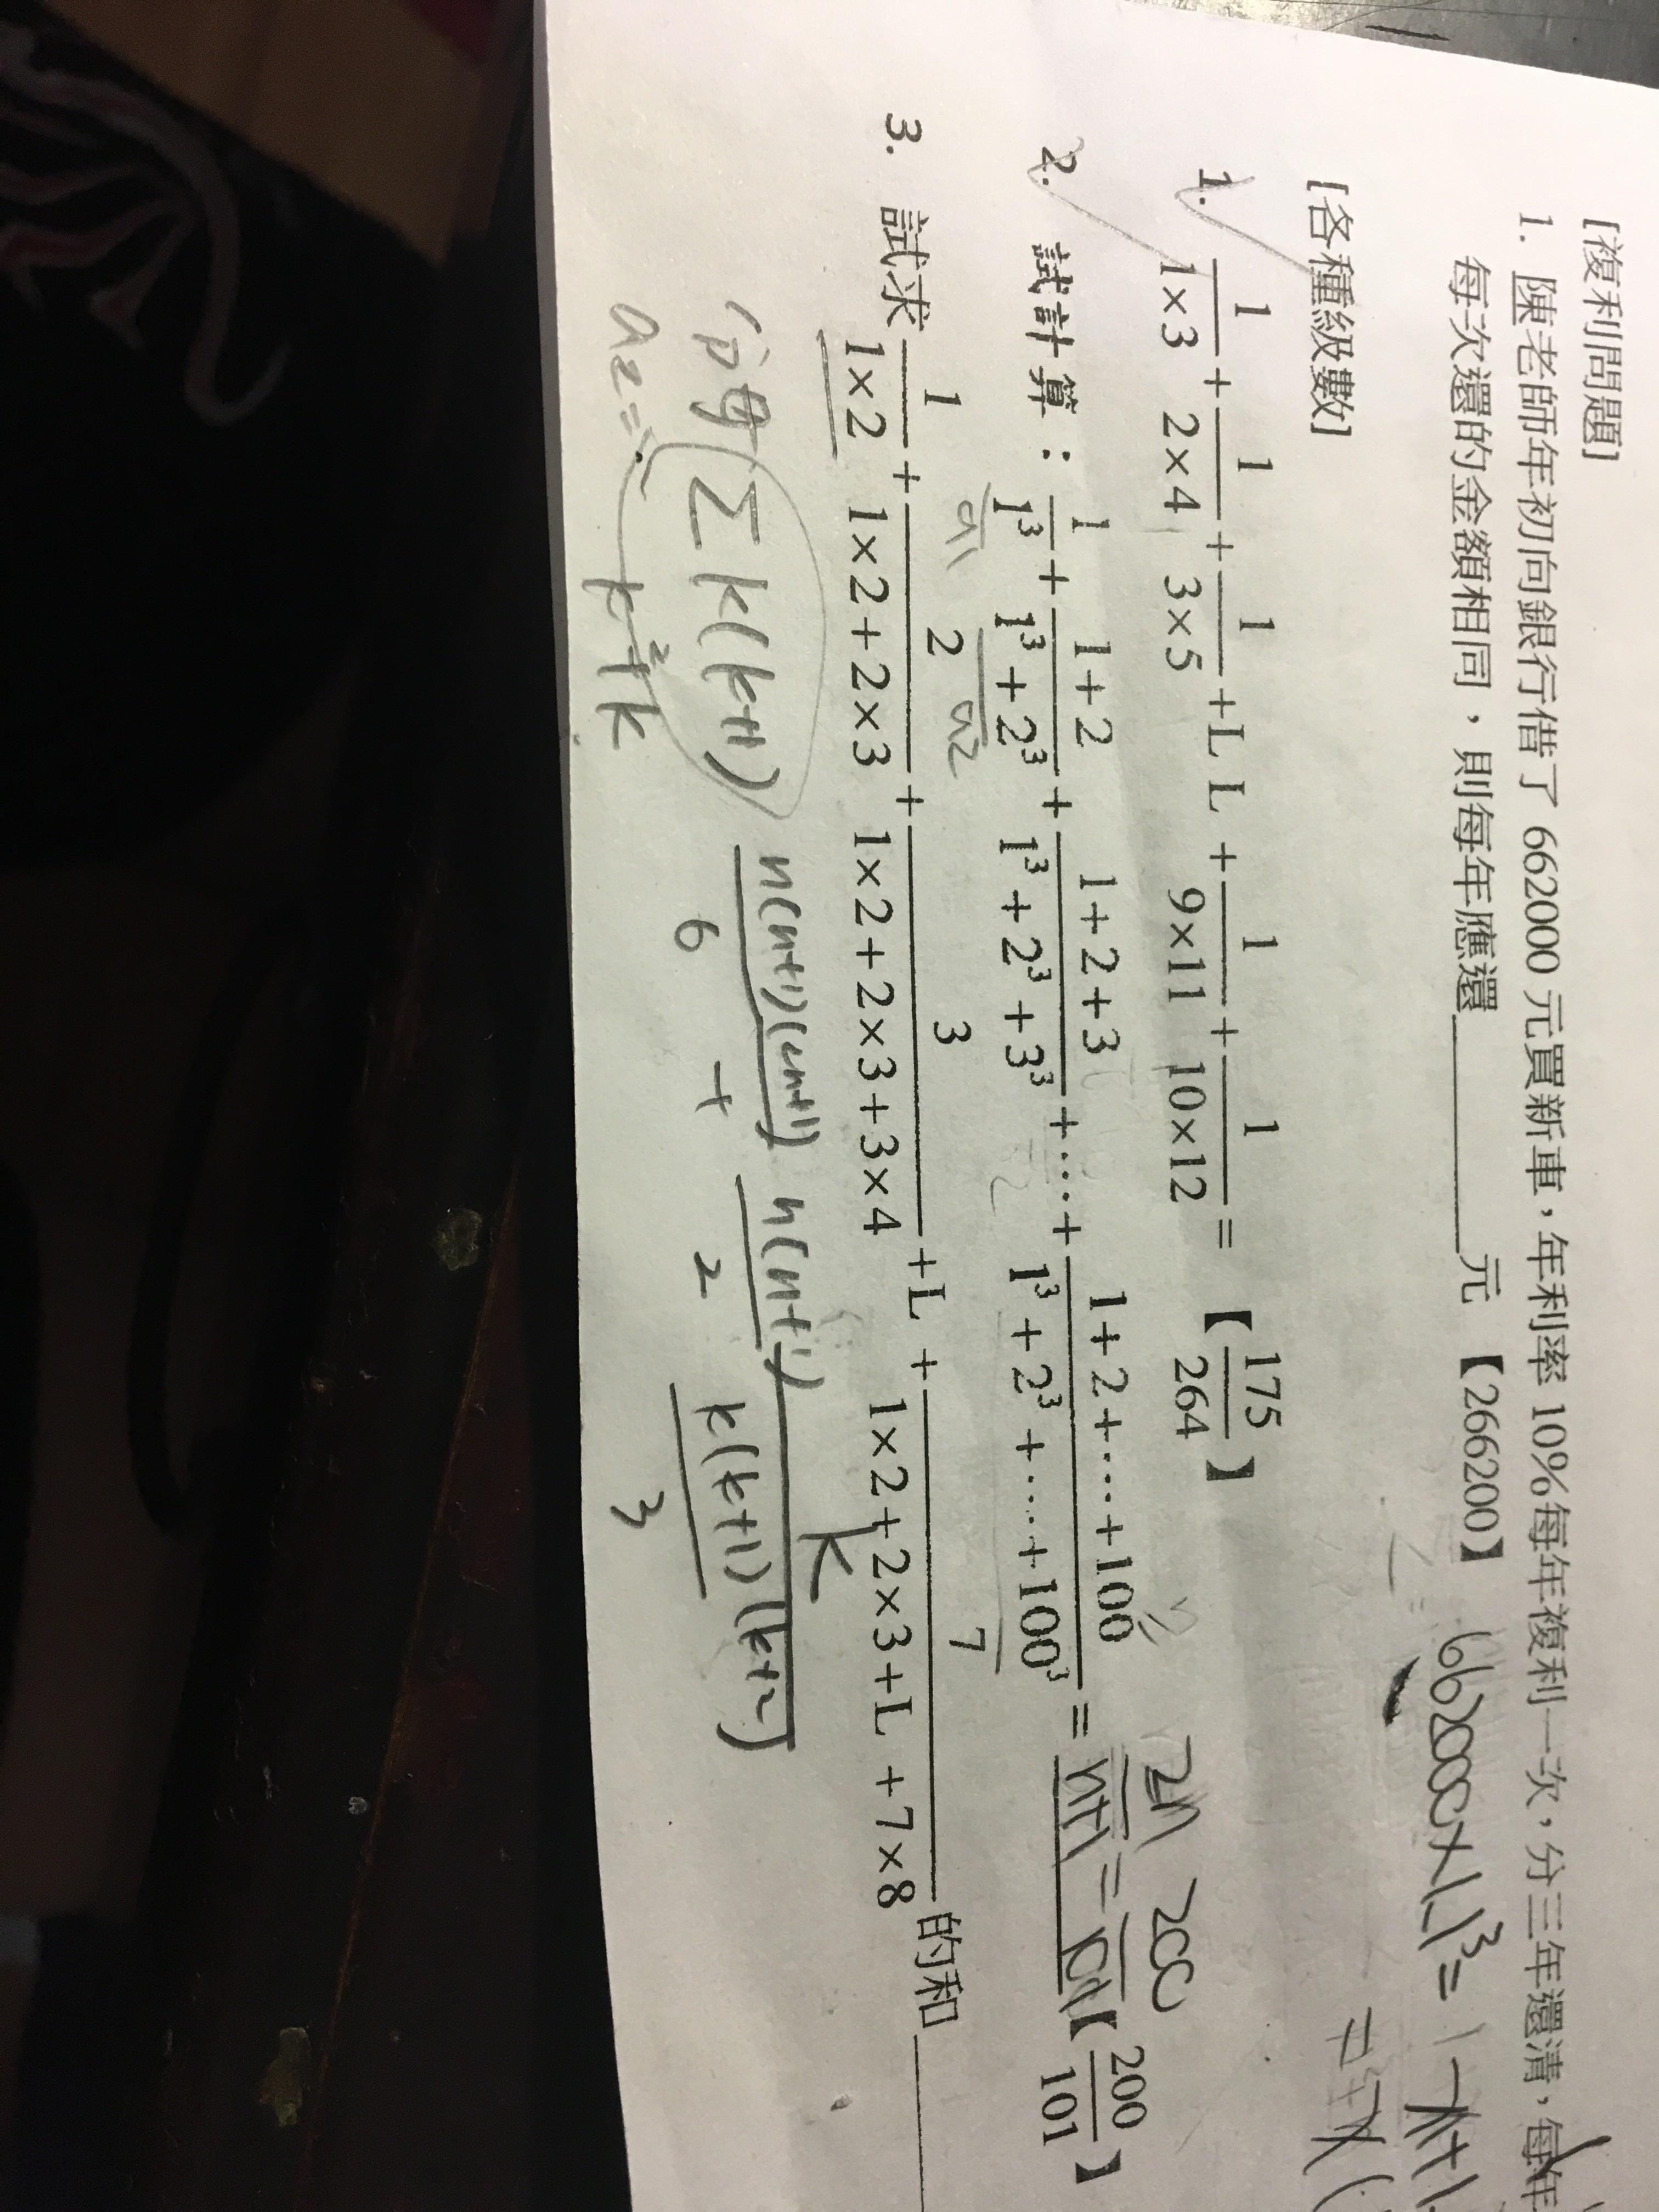 [複利問題]
1. 陳老師年初向銀行借了 662000 元買新車，年利率 10%每年複利一次，分三年還清，每年
每次還的金額相同，則每年應還________元 【266200】 662000×1.1³=
[各種級數]
1. 1/(1×3) + 1/(2×4) + 1/(3×5) +L L + 1/(9×11) + 1/(10×12) = 【175/264】
2. 試計算： 1/1³ + (1+2)/(1³+2³) + (1+2+3)/(1³+2³+3³) +⋯+ (1+2+⋯+100)/(1³+2³+⋯+100³) = 2n/(n+1) = 200/101 【200/101】
a1 a2
3. 試求 1/(1×2) + 2/(1×2+2×3) + 3/(1×2+2×3+3×4) +L + 7/(1×2+2×3+L +7×8) 的和________
分母 Σ k(k+1) n(n+1)(2n+1)/6 + n(n+1)/2 k/(k(k+1)(k+2)/3)
a2= k²+k